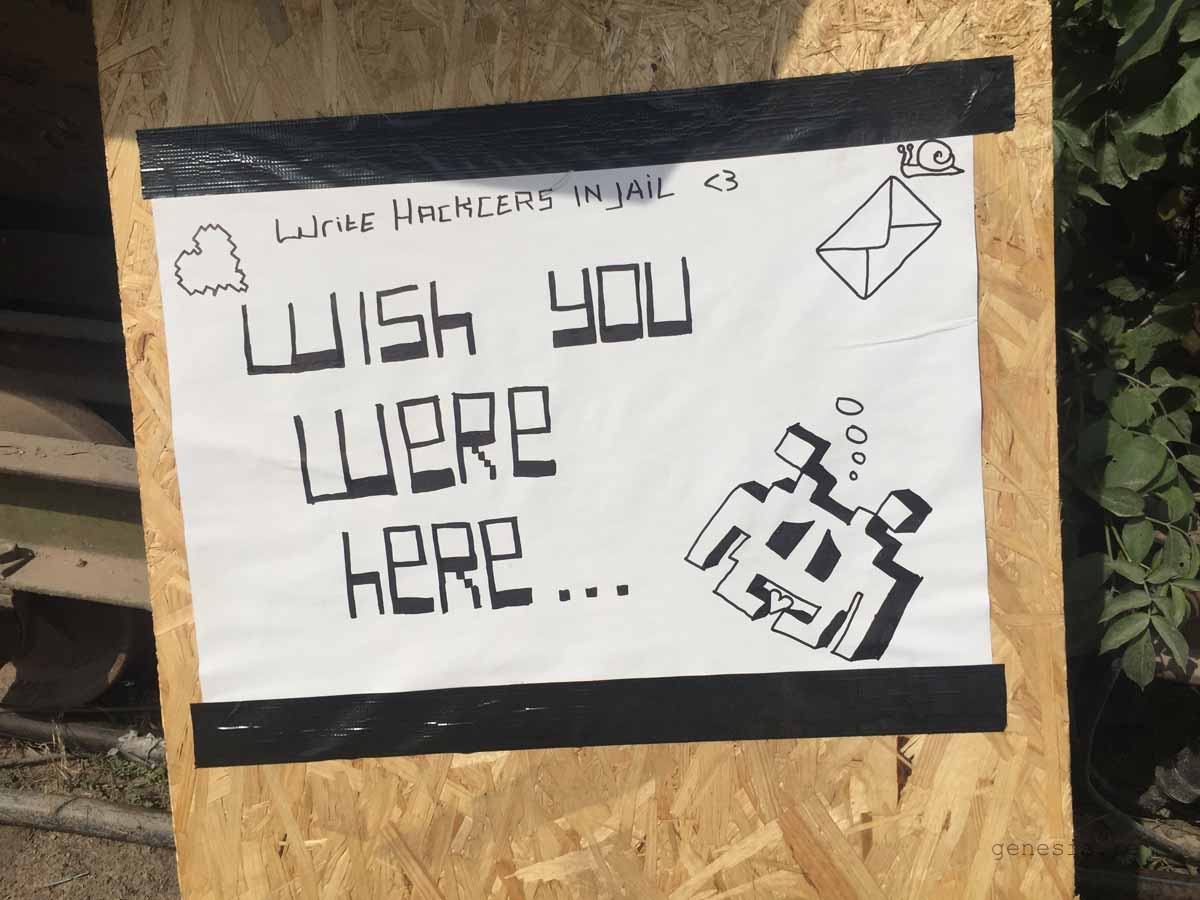 WritE HACKCERS IN JAiL <3
WISh YOU
WERE
hERE...